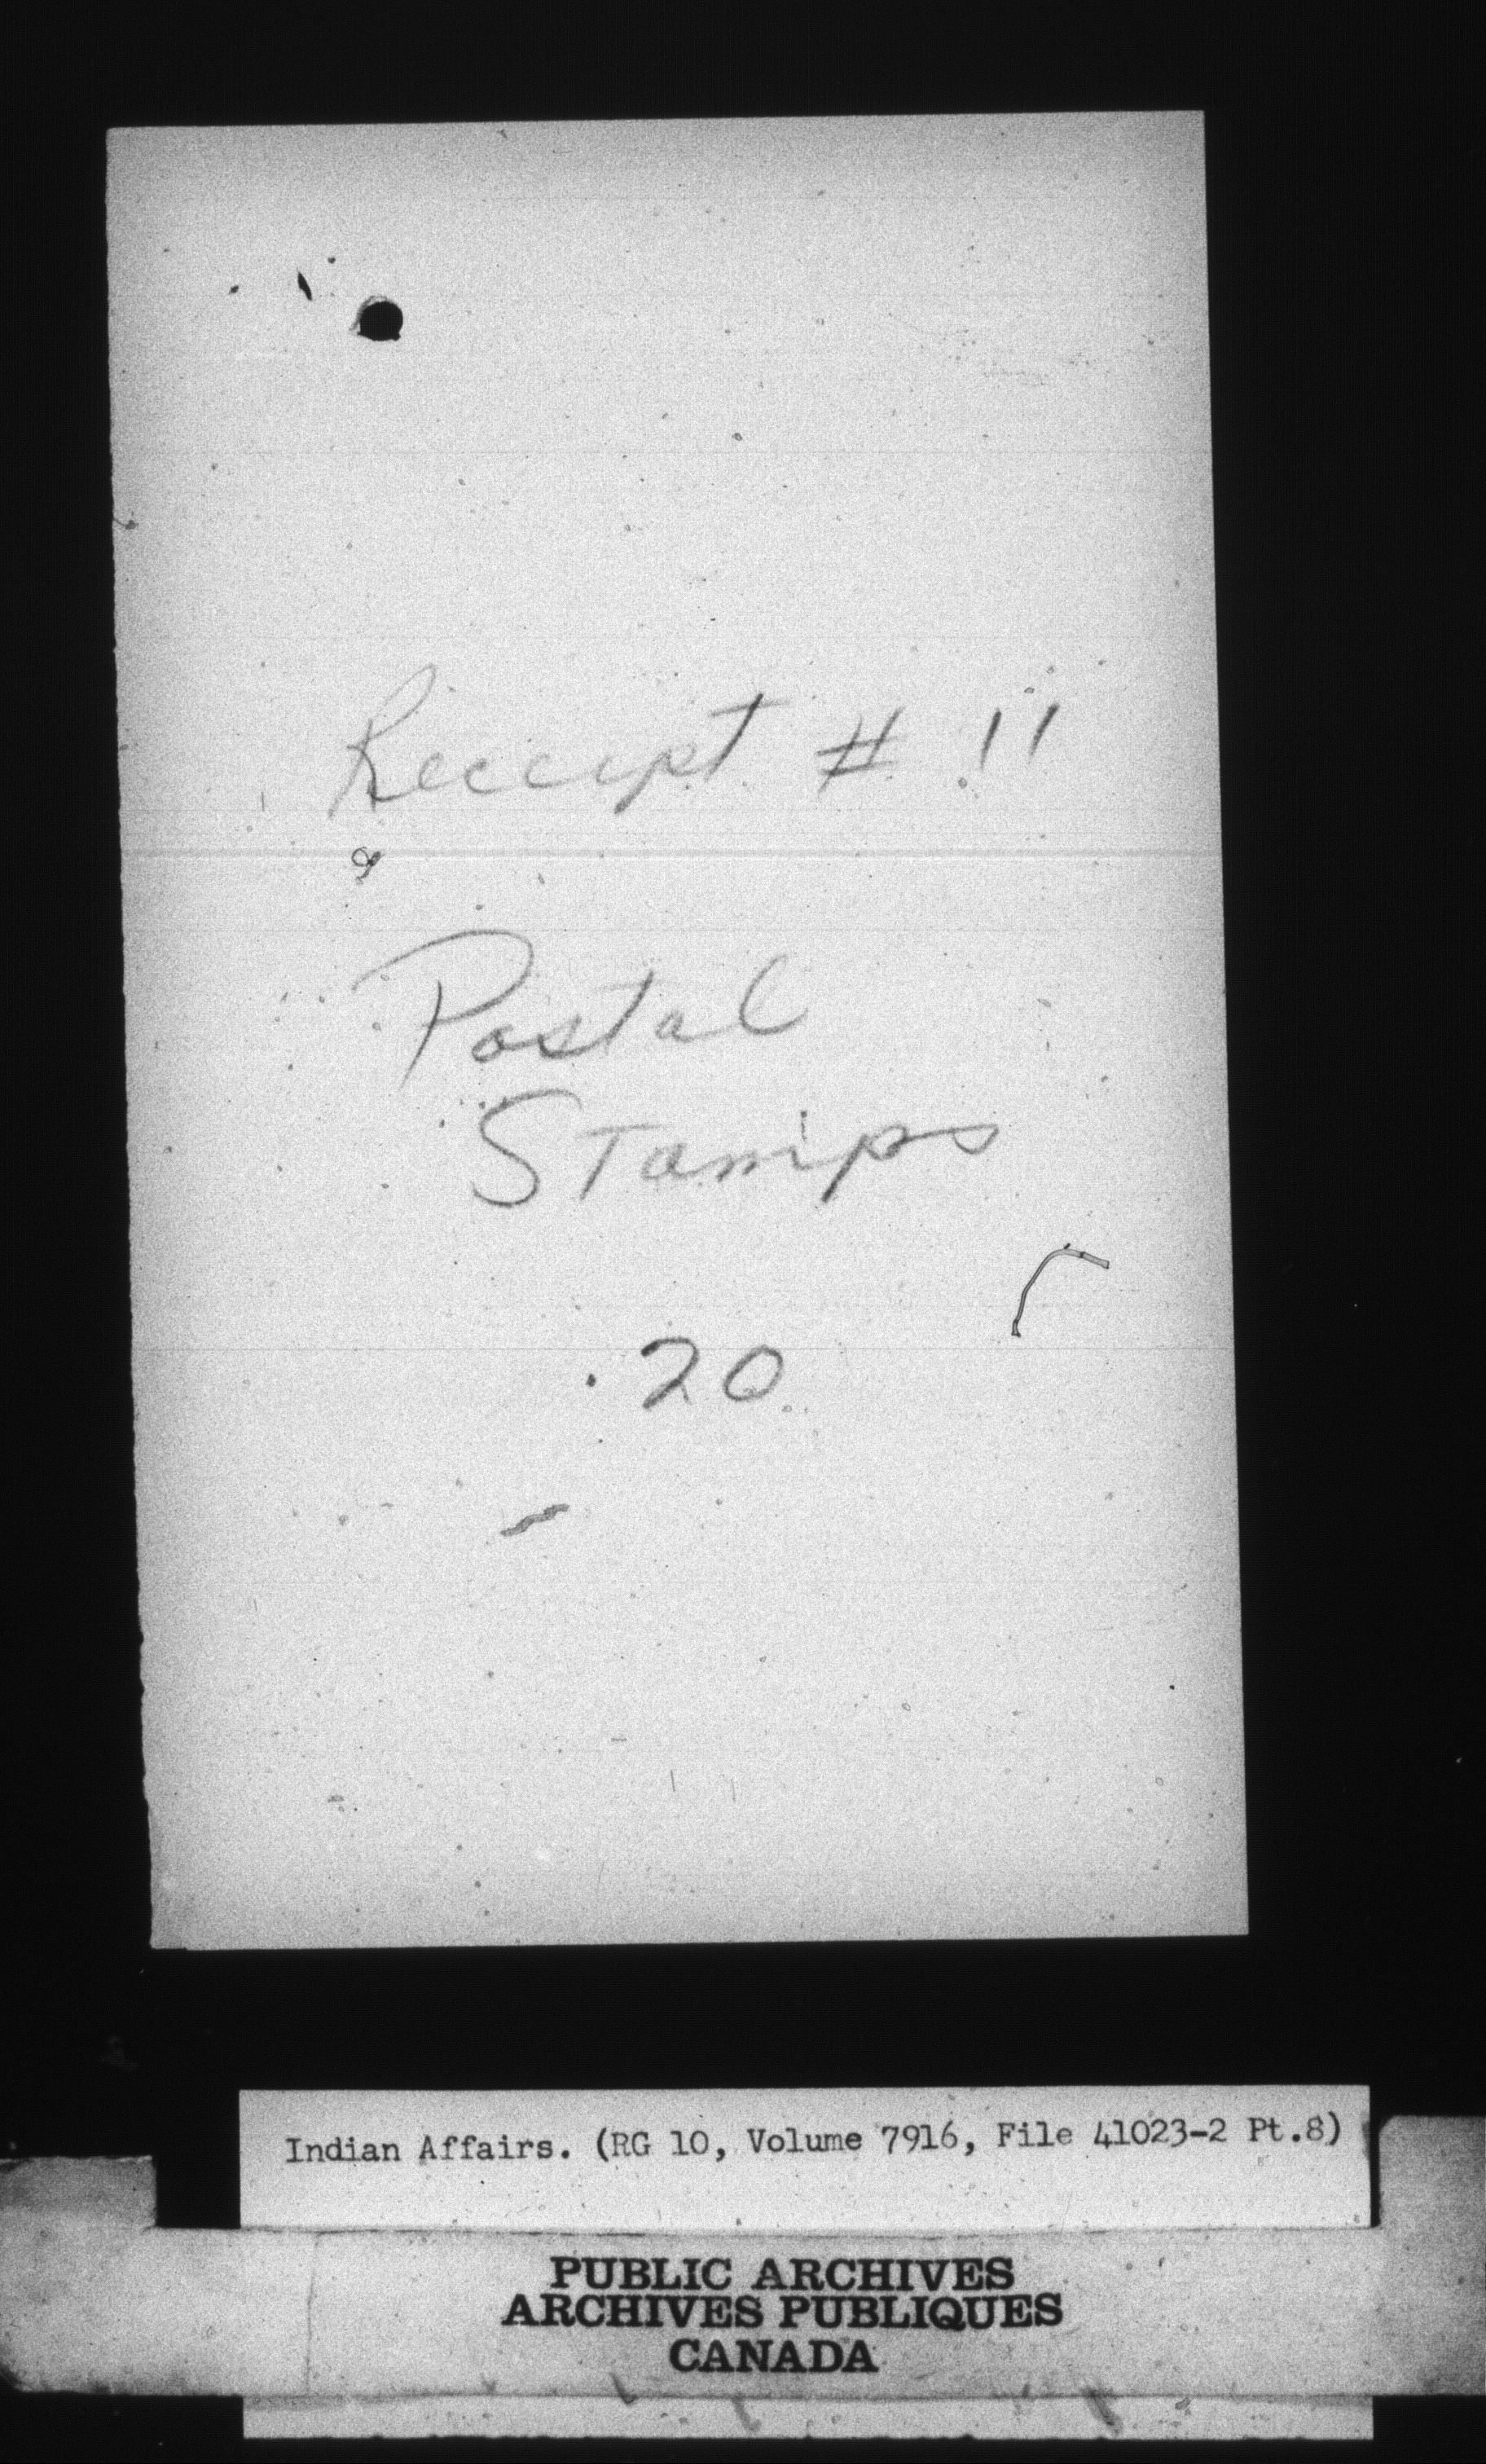 Receipt # 11
Postal
Stamps
.20
Indian Affairs. (RG 10, Volume 7916, File 41023-2 Pt.8)
PUBLIC ARCHIVES
ARCHIVES PUBLIQUES
CANADA